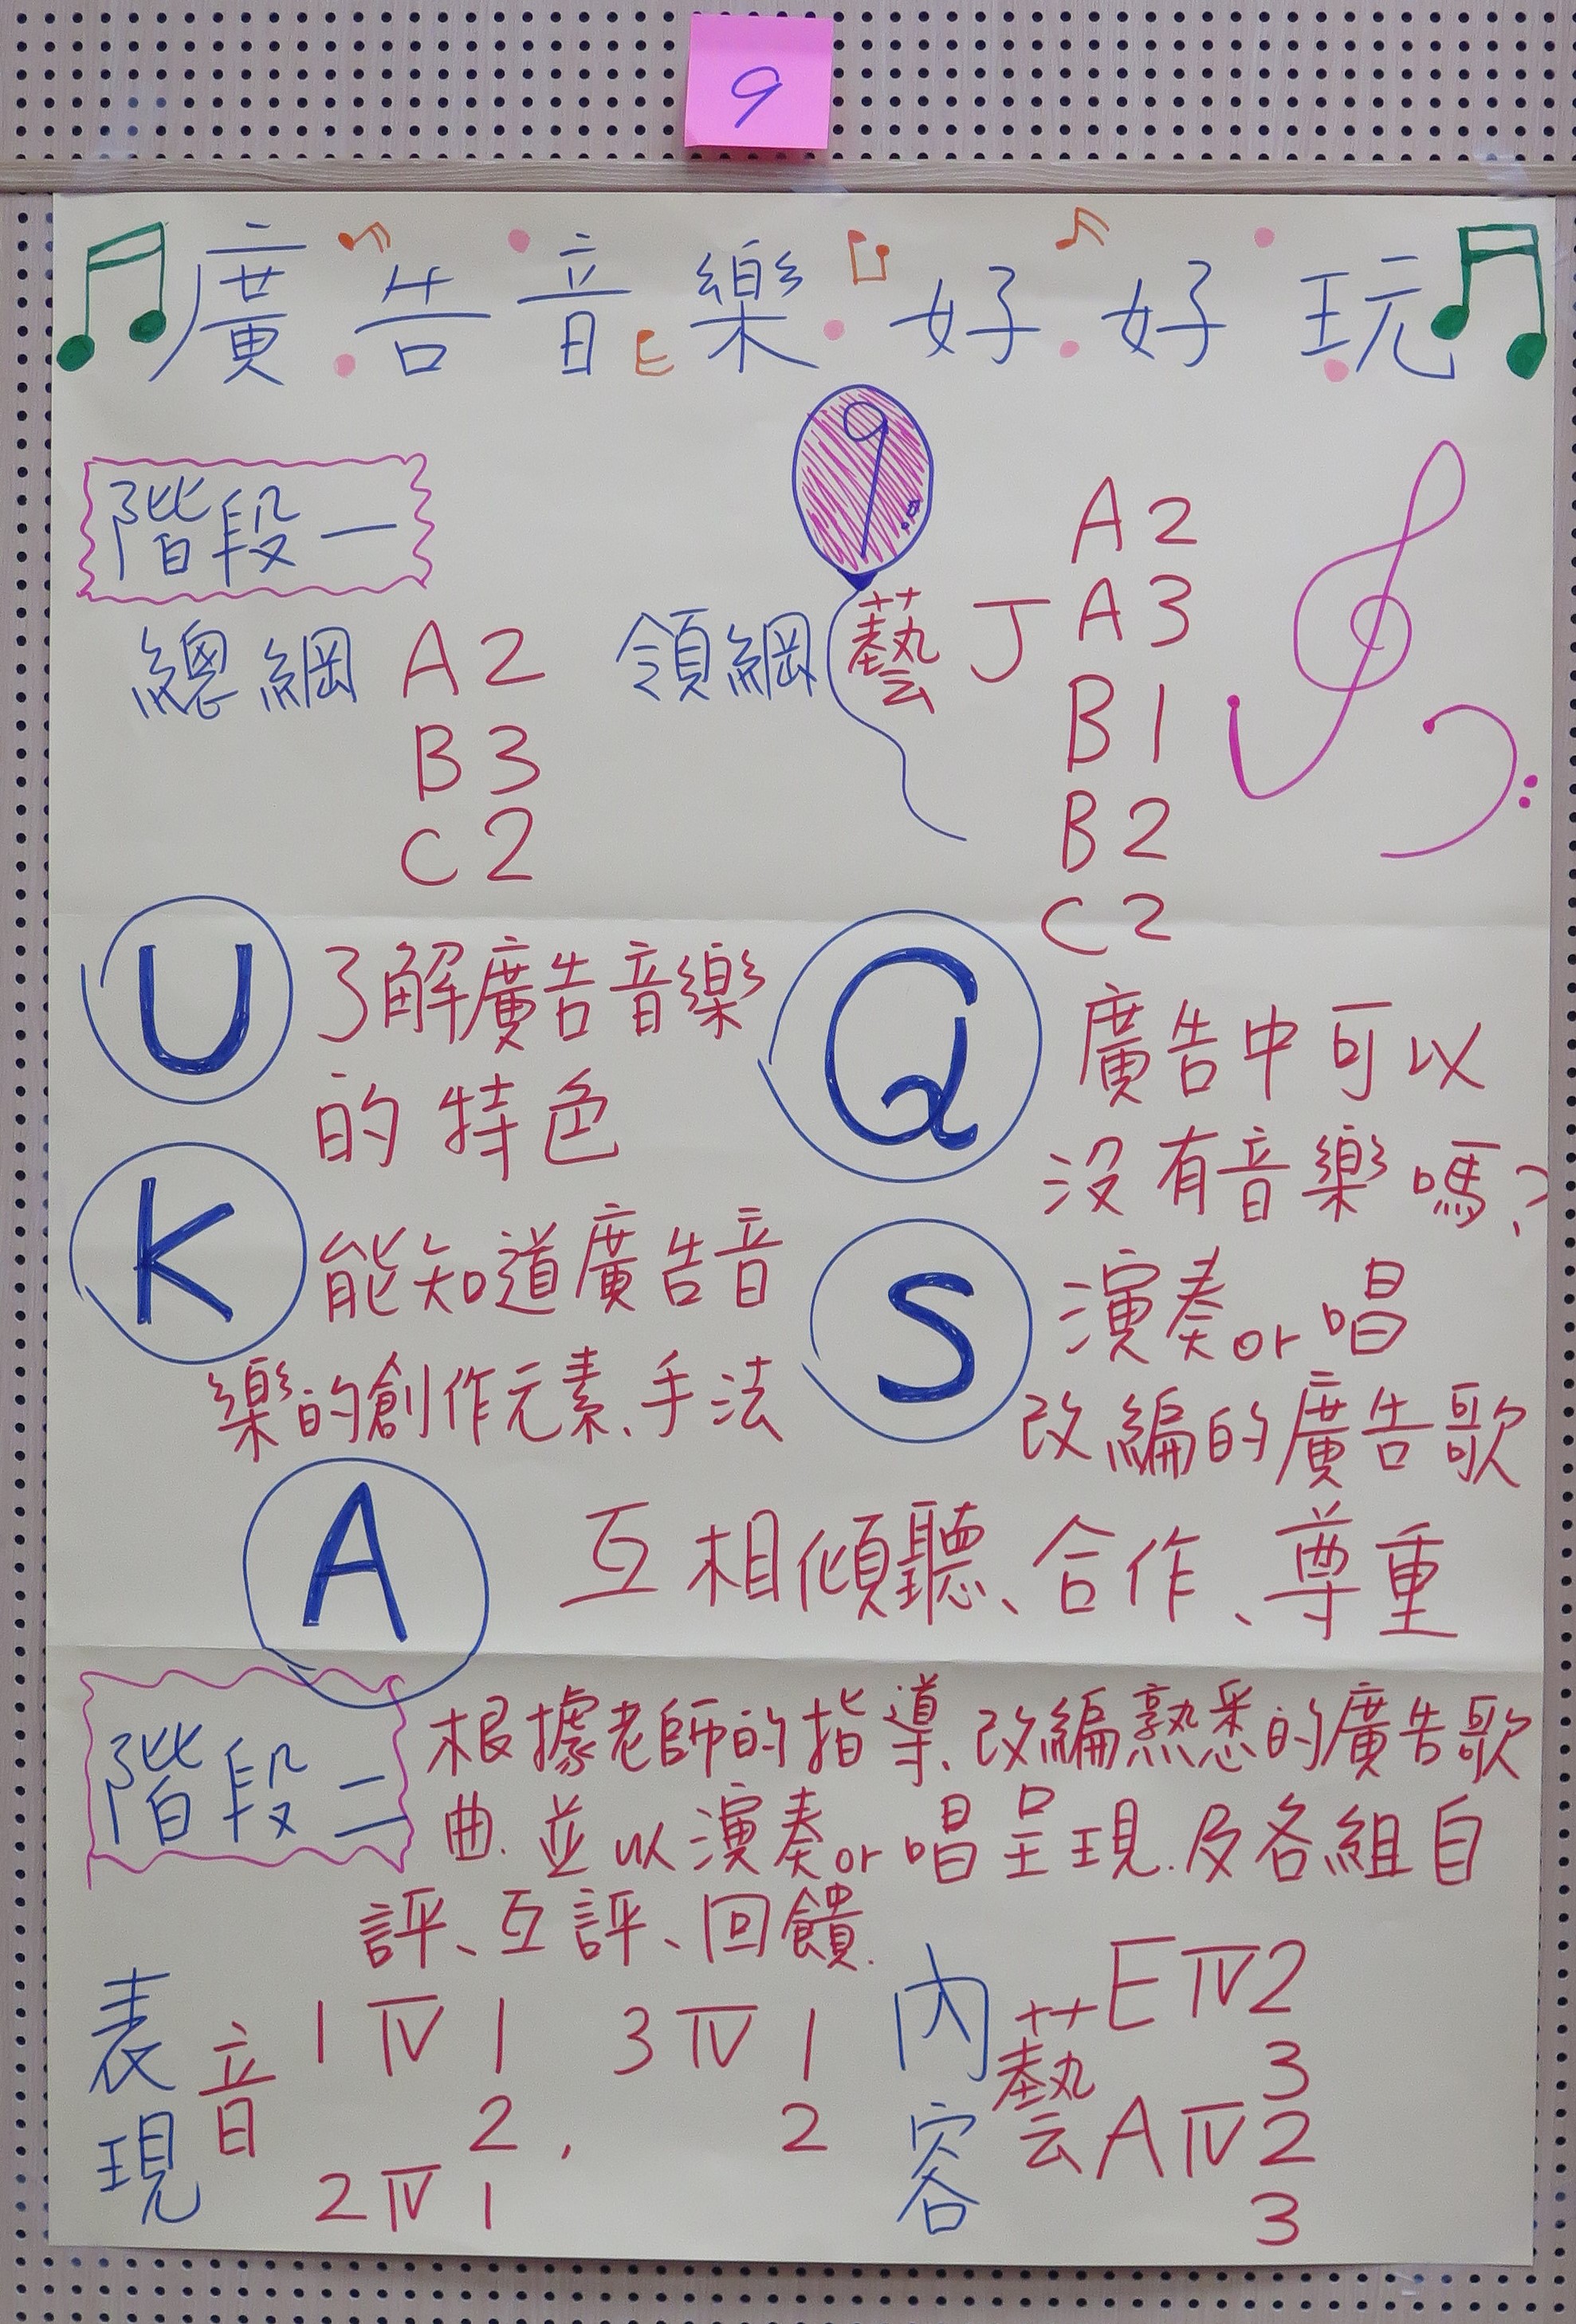 9
廣告音樂好好玩
9
階段一
總綱 A2
B3
C2
領綱 藝 J A2
A3
B1
B2
C2
U 了解廣告音樂
的特色
Q 廣告中可以
沒有音樂嗎?
K 能知道廣告音
樂的創作元素、手法
S 演奏or唱
改編的廣告歌
A 互相傾聽、合作、尊重
階段二 根據老師的指導、改編熟悉的廣告歌
曲.並以演奏or唱呈現.及各組自
評、互評、回饋.
表現 音 1 IV 1
2,
2 IV 1
3 IV 1
2
內容 藝 E IV 2
3
A IV 2
3